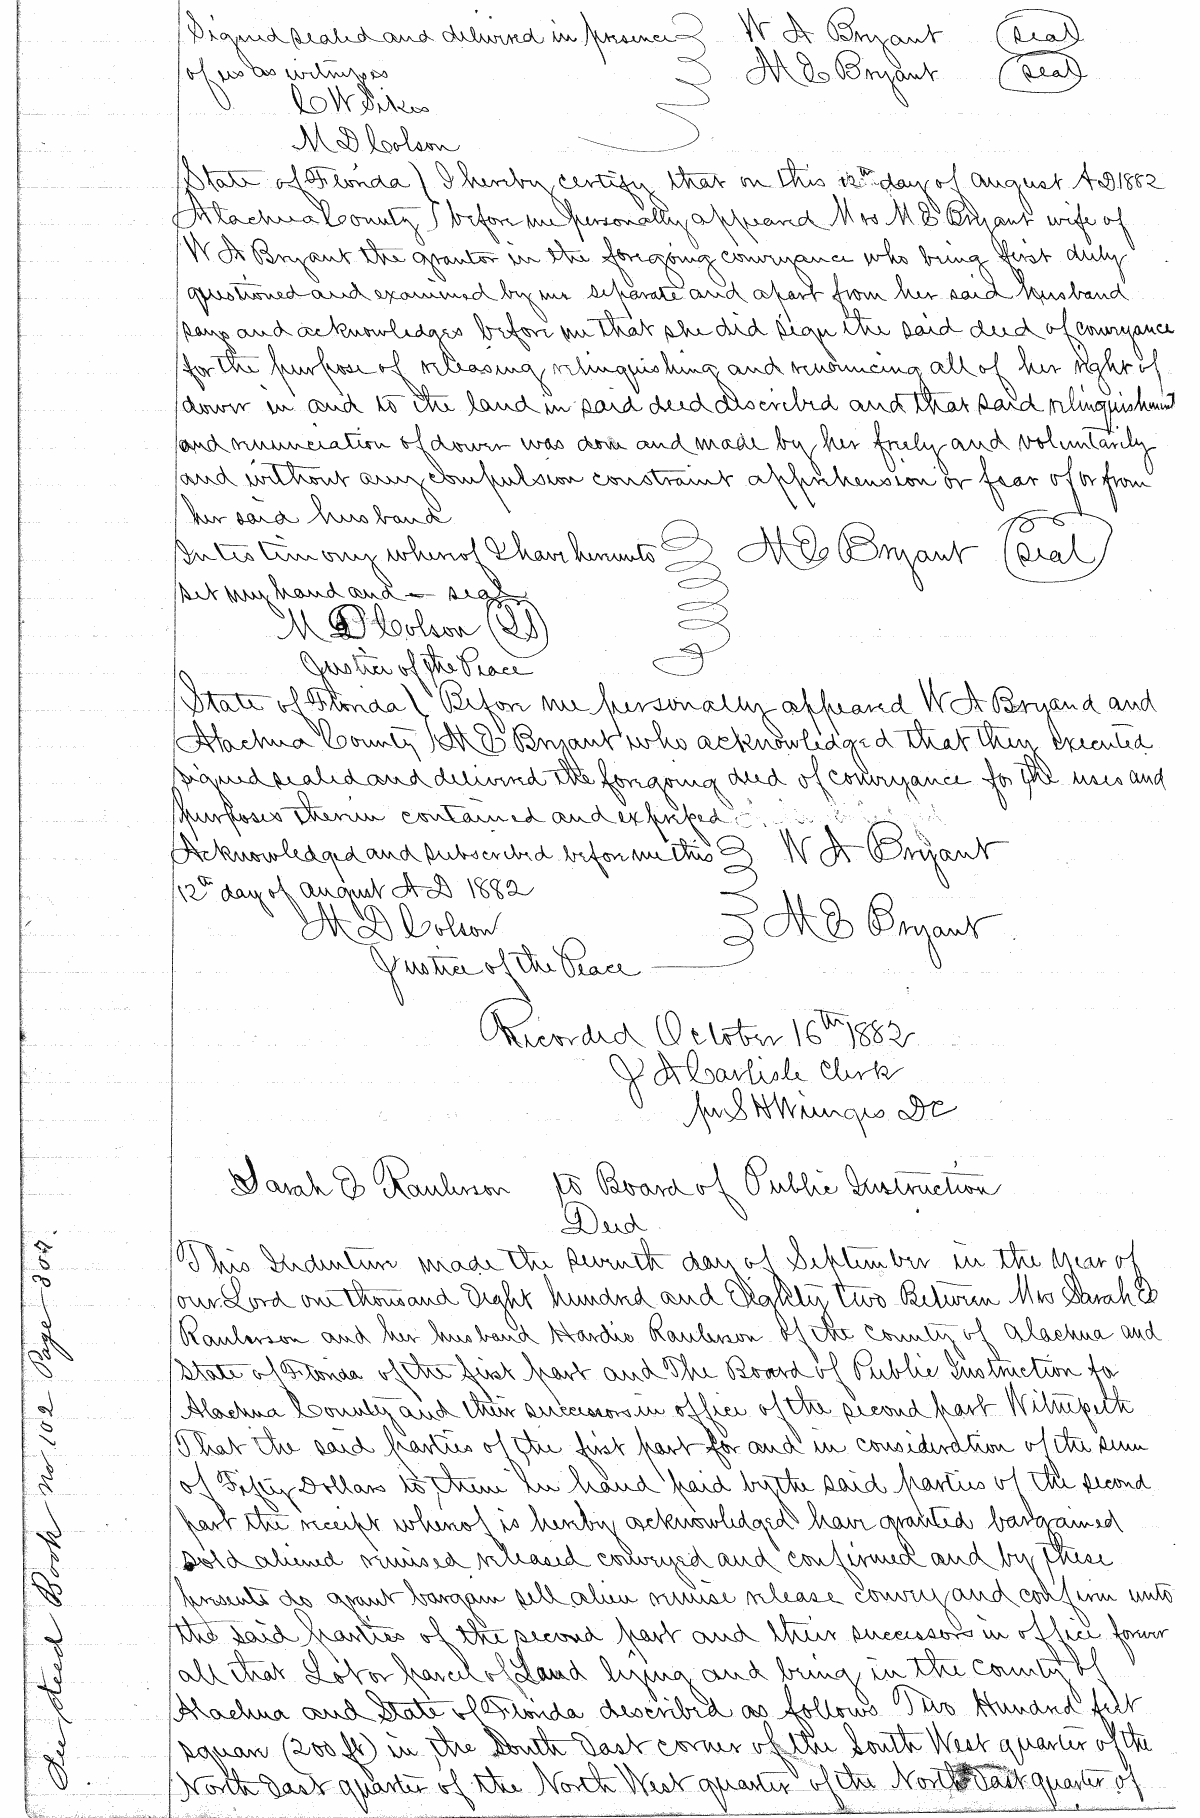 Signed sealed and delivered in presence W A Bryant (seal)
of us as witnesses M E Bryant (seal)
C W Sikes
M D Colson
State of Florida ) I hereby certify that on this 12th day of August A D 1882
Alachua County ) before me personally appeared Mrs M E Bryant wife of
W A Bryant the grantor in the foregoing conveyance who being first duly
questioned and examined by me separate and apart from her said husband
says and acknowledges before me that she did sign the said deed of conveyance
for the purpose of releasing relinquishing and renouncing all of her right of
dower in and to the land in said deed discribed and that said relinquishment
and renunciation of dower was don and made by her freely and voluntarily
and without any compulsion constraint apprehension or fear of or from
her said husband
In testimony whereof I have hereunto M E Bryant (seal)
set my hand and — seal
M D Colson (LS)
Justice of the Peace
State of Florida ) Before me personally appeared W A Bryand and
Alachua County ) M E Bryant who acknowledged that they executed
signed sealed and delivered the foregoing deed of conveyance for the uses and
purposes therein contained and expressed
Acknowledged and subscribed before me this W A Bryant
12th day of August A D 1882
M D Colson M E Bryant
Justice of the Peace
Recorded October 16th 1882
J A Carlisle Clerk
per S H Wienges DC
Sarah E Raulerson to Board of Public Instruction
Deed
This Indenture made the seventh day of September in the Year of
our Lord one thousand Eight hundred and Eighty two Between Mrs Sarah E
Raulerson and her husband Hardie Raulerson of the county of Alachua and
State of Florida of the first part and The Board of Public Instruction fo
Alachua County and their successors in office of the second part Witnesseth
That the said parties of the first part for and in consideration of the sum
of Fifty Dollars to them in hand paid by the said parties of the second
part the receipt whereof is hereby acknowledged have granted bargained
sold aliened remised released conveyed and confirmed and by these
presents do grant bargain sell alien remise release convey and confirm unto
the said parties of the second part and their successors in office forever
all that Lot or parcel of Land lying and being in the county of
Alachua and State of Florida described as follows Two Hundred feet
square (200 ft) in the South East corner of the South West quarter of the
North East quarter of the North West quarter of the North East quarter of
See deed Book no 102 Page 305.